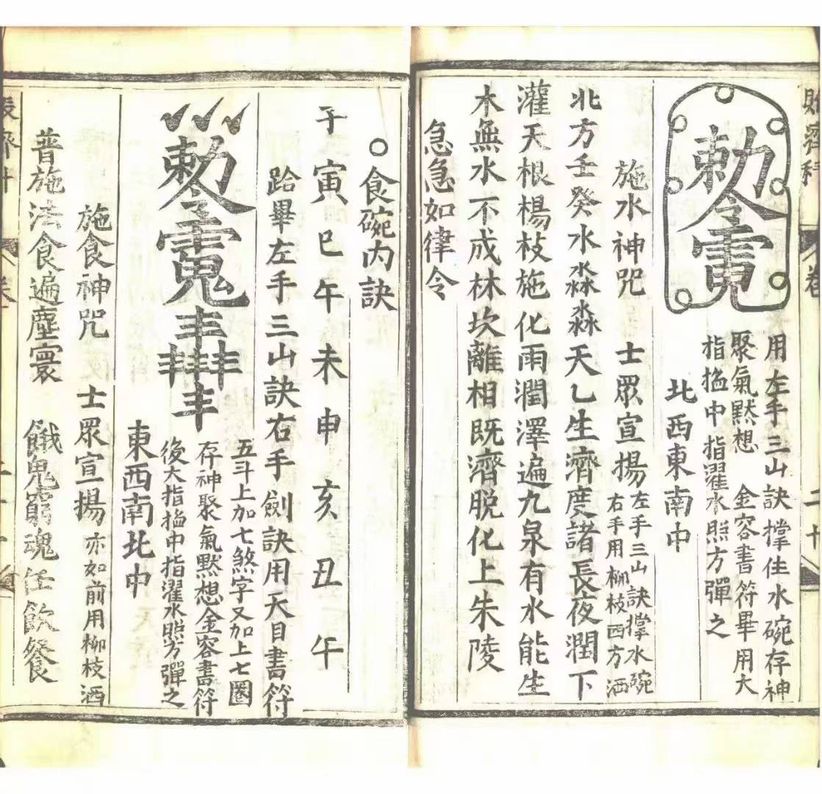 勅令
用左手三山訣撑住水碗存神
聚氣默想 金容書符畢用大
指搯中指濯水照方彈之
北西東南中
施水神咒 士眾宣揚 左手三山訣撑水碗
右手用柳枝四方洒
北方壬癸水淼淼天乙生濟度諸長夜潤下
灌天根楊枝施化雨潤澤遍九泉有水能生
木無水不成林坎離相既濟脫化上朱陵
急急如律令
○食碗内訣
子寅巳午未申亥丑午
跲畢左手三山訣右手劍訣用天目書符
勅令
五斗上加七煞字又加上七圈
存神聚氣默想金容書符
後大指搯中指濯水照方彈之
東西南北中
施食神咒 士眾宣揚 亦如前用柳枝洒
普施法食遍塵寰 餓鬼窮魂任飲餐